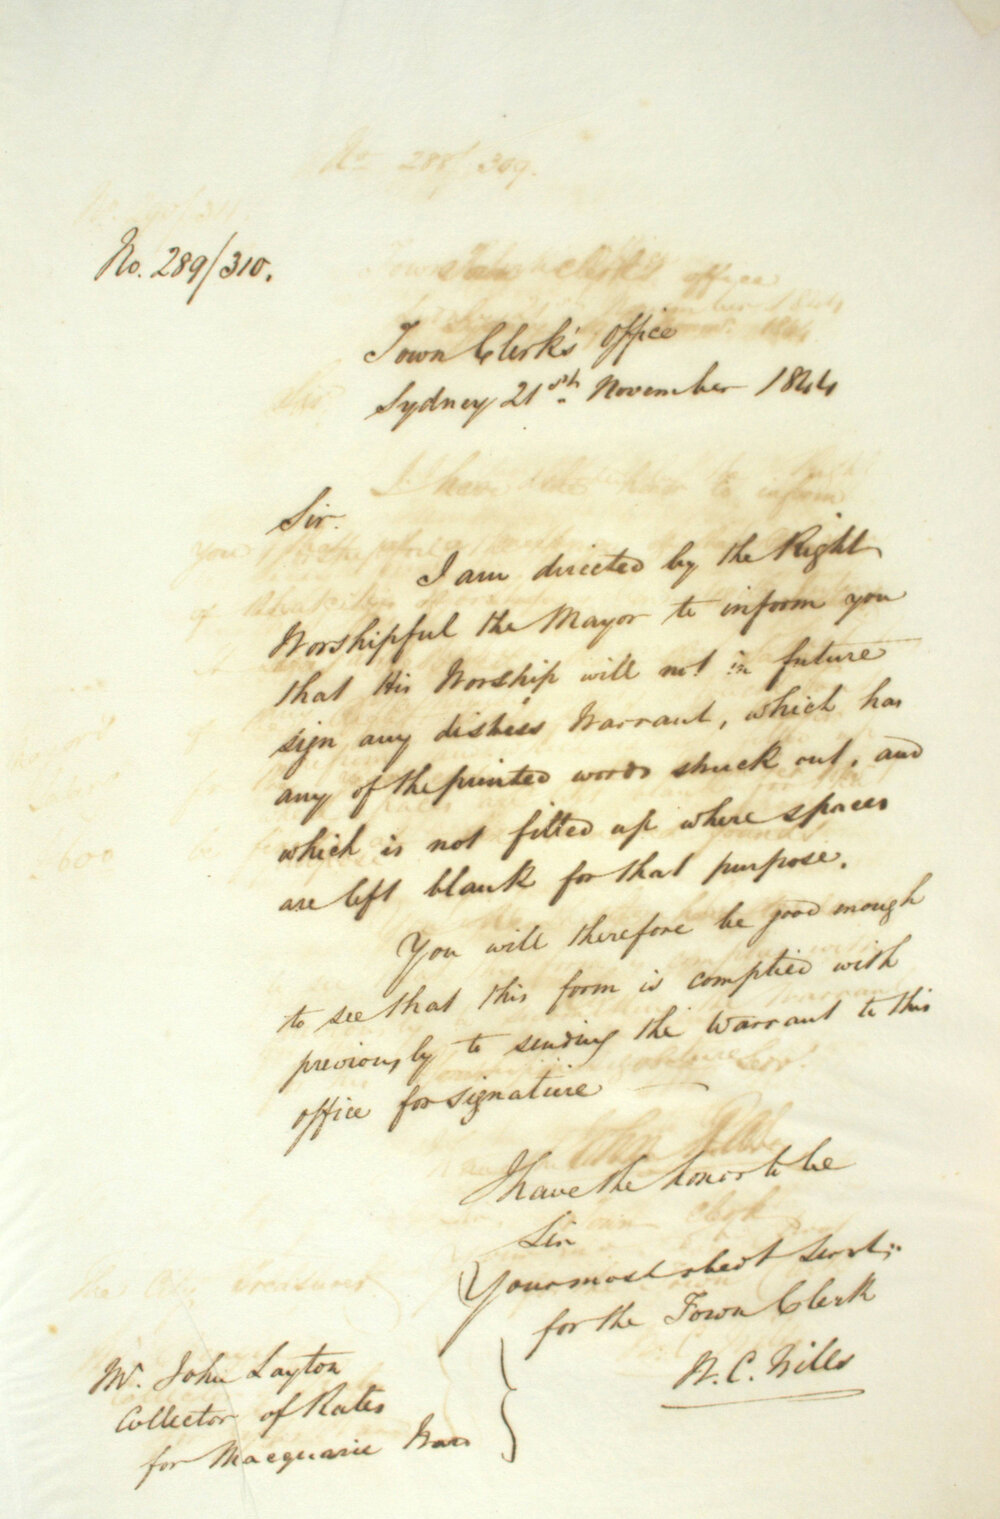 No. 289/310.
Town Clerk's Office
Sydney 21st. November 1844
Sir.
I am directed by the Right
Worshipful the Mayor to inform you
that His Worship will not in future
sign any distress Warrant, which has
any of the printed words struck out, and
which is not filled up where spaces
are left blank for that purpose.
You will therefore be good enough
to see that this form is complied with
previously to sending the Warrant to this
office for signature
I have the honor to be
Sir
Your most obedt Servt.
for the Town Clerk
W. C. Wills
Mr. John Layton
Collector of Rates
for Macquarie Ward
No 288/309.